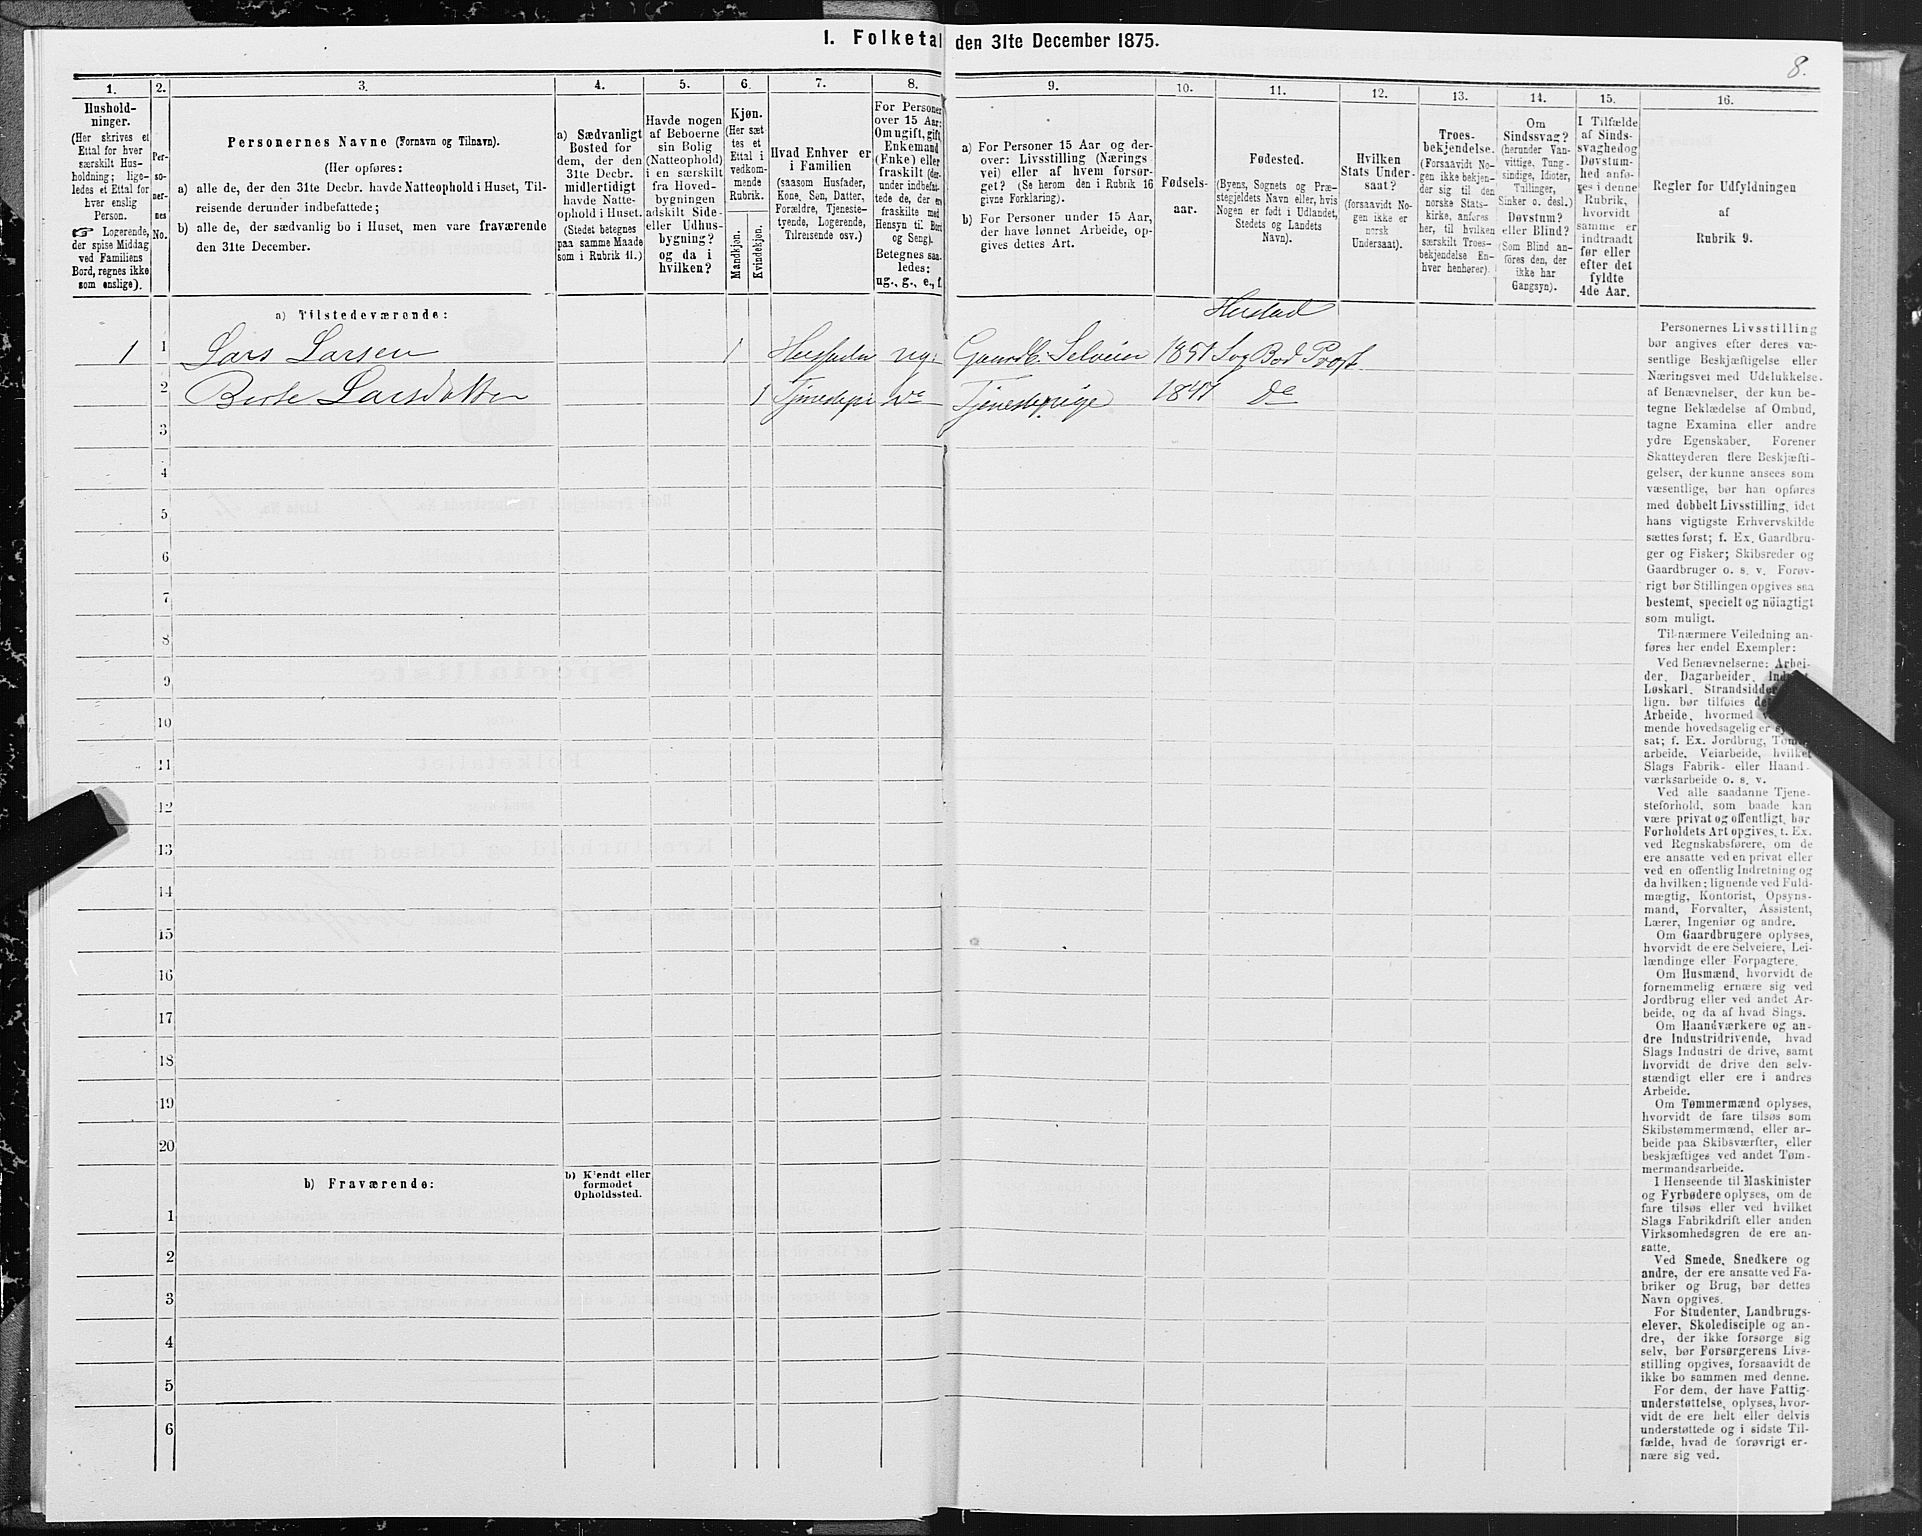 I. Folketal den 31te December 1875.
8.
1.
Hushold-
ninger.
(Her skrives et
Ettal for hver
særskilt Hus-
holdning; lige-
ledes et Ettal for
hver enslig
Person.
☞ Logerende,
der spise Middag
ved Familiens
Bord, regnes ikke
som enslige).
2.
Per-
so-
ner-
nes
No.
3.
Personernes Navne (Fornavn og Tilnavn).
(Her opføres:
a) alle de, der den 31te Decbr. havde Natteophold i Huset, Til-
reisende derunder indbefattede;
b) alle de, der sædvanlig bo i Huset, men vare fraværende
den 31te December.
4.
a) Sædvanligt
Bosted for
dem, der den
31te Decbr.
midlertidigt
havde Natte-
ophold i Huset.
(Stedet betegnes
paa samme Maade
som i Rubrik 11.)
5.
Havde nogen
af Beboerne
sin Bolig
(Natteophold)
i en særskilt
fra Hoved-
bygningen
adskilt Side-
eller Udhus-
bygning?
og da i
hvilken?
6.
Kjøn.
(Her sæt-
tes et
Ettal i
vedkom-
mende
Rubrik.
Mandkjøn.
Kvindekjøn.
7.
Hvad Enhver er
i Familien
(saasom Husfader,
Kone, Søn, Datter,
Forældre, Tjeneste-
tyende, Logerende,
Tilreisende osv.)
8.
For Personer
over 15 Aar:
Om ugift, gift,
Enkemand
(Enke) eller
fraskilt (der-
under indbefat-
tede de, der er
fraskilte med
Hensyn til Bord
og Seng).
Betegnes saa-
ledes:
ug., g., e., f.
9.
a) For Personer 15 Aar og der-
over: Livsstilling (Nærings
vei) eller af hvem forsør-
get? (Se herom den i Rubrik 16
givne Forklaring).
b) For Personer under 15 Aar,
der have lønnet Arbeide, op-
gives dettes Art.
10.
Fødsels-
aar.
11.
Fødested.
(Byens, Sognets og Præ-
stegjeldets Navn eller, hvis
Nogen er født i Udlandet,
Stedets og Landets
Navn).
12.
Hvilken
Stats Under-
saat?
(forsaavidt No-
gen ikke er
norsk
Undersaat).
13.
Troes-
bekjendelse.
(Forsaavidt No-
gen ikke bekjen-
der sig til den
norske Stats-
kirke, anføres
her, til hvilken
særskilt Troes-
bekjendelse En-
hver henhører).
14.
Om
Sindssvag?
(herunder Van-
vittige, Tung-
sindige, Idioter,
Tullinger,
Sinker o. desl.)
Døvstum?
eller Blind?
(Som Blind an-
føres den, der
ikke har
Gangsyn).
15.
I Tilfælde
af Sinds-
svaghed og
Døvstum-
hed anfø-
res i denne
Rubrik,
hvorvidt
samme er
indtraadt
før eller
efter det
fyldte
4de Aar.
16.
Regler for Udfyldningen
af
Rubrik 9.
a) Tilstedeværende:
Herstad
1 1 Lars Larsen 1 Husfader ug: Gaardb. Selveier 1851 Sog Bod Præst
2 Berte Larsdatter 1 Tjenestepi Do Tjenestepige 1847 Do
3
4
5
6
7
8
9
10
11
12
13
14
15
16
17
18
19
20
b) Fraværende:
b) Kjendt eller
formodet
Opholdssted.
1
2
3
4
5
6
Personernes Livsstilling
bør angives efter deres væ-
sentlige Beskjæftigelse eller
Næringsvei med Udelukkelse
af Benævnelser, der kun be-
tegne Beklædelse af Ombud,
tagne Examina eller andre
ydre Egenskaber. Forener
Skatteyderen flere Beskjæfti-
gelser, der kunne ansees som
væsentlige, bør han opføres
med dobbelt Livsstilling, idet
hans vigtigste Erhvervskilde
sættes først; f. Ex. Gaardbru-
ger og Fisker; Skibsreder og
Gaardbruger o. s. v. Forøv-
rigt bør Stillingen opgives saa
bestemt, specielt og nöiagtigt
som muligt.
Til nærmere Veiledning an-
føres her endel Exempler:
Ved Benævnelserne: Arbei-
der, Dagarbeider,
Løskarl, Strandsidder
lign. bør tilføies
Arbeide, hvormed
mende hovedsagelig er
sat; f. Ex. Jordbrug,
arbeide, Veiarbeide, hvilket
Slags Fabrik- eller Haand-
værksarbeide o. s. v.
Ved alle saadanne Tjene-
steforhold, som baade kan
være privat og offentligt, bør
Forholdets Art opgives, t. Ex.
ved Regnskabsførere, om de
ere ansatte ved en privat eller
ved en offentlig Indretning og
da hvilken; lignende ved Fuld-
mægtig, Kontorist, Opsyns-
mand, Forvalter, Assistent,
Lærer, Ingeniør og andre.
Om Gaardbrugere oplyses,
hvorvidt de ere Selveiere, Lei-
lændinge eller Forpagtere.
Om Husmænd, hvorvidt de
fornemmelig ernære sig ved
Jordbrug eller ved andet Ar-
beide, og da af hvad Slags.
Om Haandværkere og an-
dre Industridrivende, hvad
Slags Industri de drive, samt
hvorvidt de drive den selv-
stændigt eller ere i andres
Arbeide.
Om Tømmermænd oplyses,
hvorvidt de fare tilsøs som
Skibstømmermænd, eller ar-
beide paa Skibsværfter, eller
beskjæftiges ved andet Tøm-
mermandsarbeide.
I Henseende til Maskinister
og Fyrbødere oplyses, om de
fare tilsøs eller ved hvilket
Slags Fabrikdrift eller anden
Virksomhedsgren de ere an-
satte.
Ved Smede, Snedkere og
andre, der ere ansatte ved Fa-
briker og Brug, bør dettes
Navn opgives.
For Studenter, Landbrugs-
elever, Skoledisciple og an-
dre, der ikke forsørge sig
selv, bør Forsørgerens Livs-
stilling opgives, forsaavidt de
ikke bo sammen med denne.
For dem, der have Fattig-
understøttelse, oplyses, hvor-
vidt de ere helt eller delvis
understøttede og i sidste Til-
fælde, hvad de forøvrigt er-
nære sig ved.